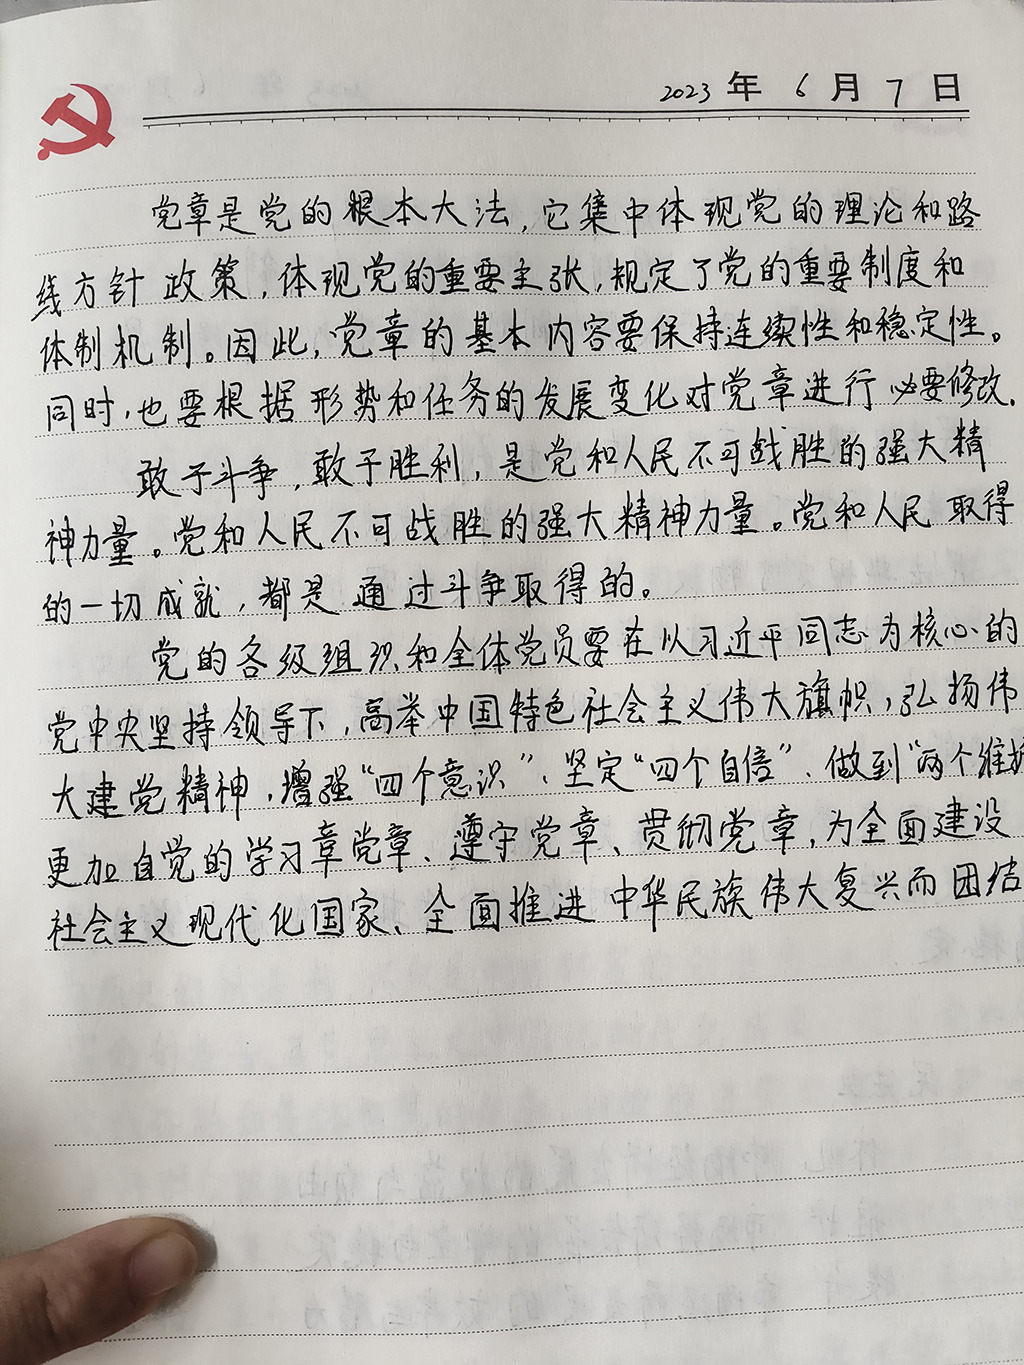 2023 年 6 月 7 日
党章是党的根本大法,它集中体现党的理论和路
线方针政策,体现党的重要主张,规定了党的重要制度和
体制机制。因此,党章的基本内容要保持连续性和稳定性。
同时,也要根据形势和任务的发展变化对党章进行必要修改.
敢于斗争,敢于胜利,是党和人民不可战胜的强大精
神力量。党和人民不可战胜的强大精神力量。党和人民取得
的一切成就,都是通过斗争取得的。
党的各级组织和全体党员要在以习近平同志为核心的
党中央坚持领导下,高举中国特色社会主义伟大旗帜,弘扬伟
大建党精神,增强“四个意识”、坚定“四个自信”、做到“两个维护
更加自觉的学习章党章、遵守党章、贯彻党章,为全面建设
社会主义现代化国家、全面推进中华民族伟大复兴而团结